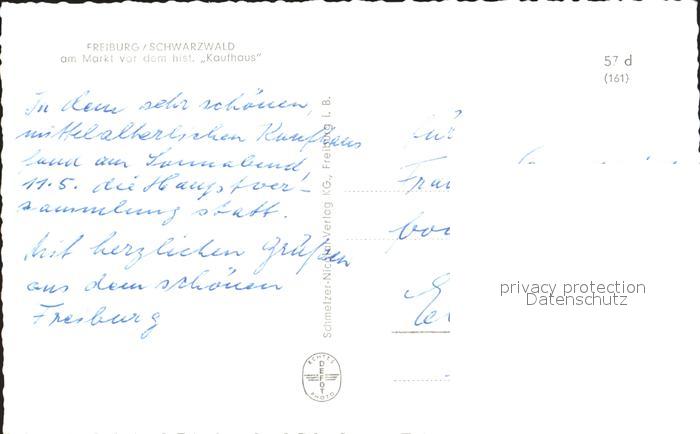 FREIBURG / SCHWARZWALD
am Markt vor dem hist. „Kaufhaus"
57 d
(161)
In dem sehr schönen,
mittelalterlichen Kaufhaus
fand am Sonnabend
11.5. die Hauptver-
sammlung statt.
Mit herzlichen Grüßen
aus dem schönen
Freiburg
Schmelzer-Nicolai-Verlag KG., Freiburg I. B.
ECHTES
DEFOT
PHOTO
für
Frau
privacy protection
Datenschutz